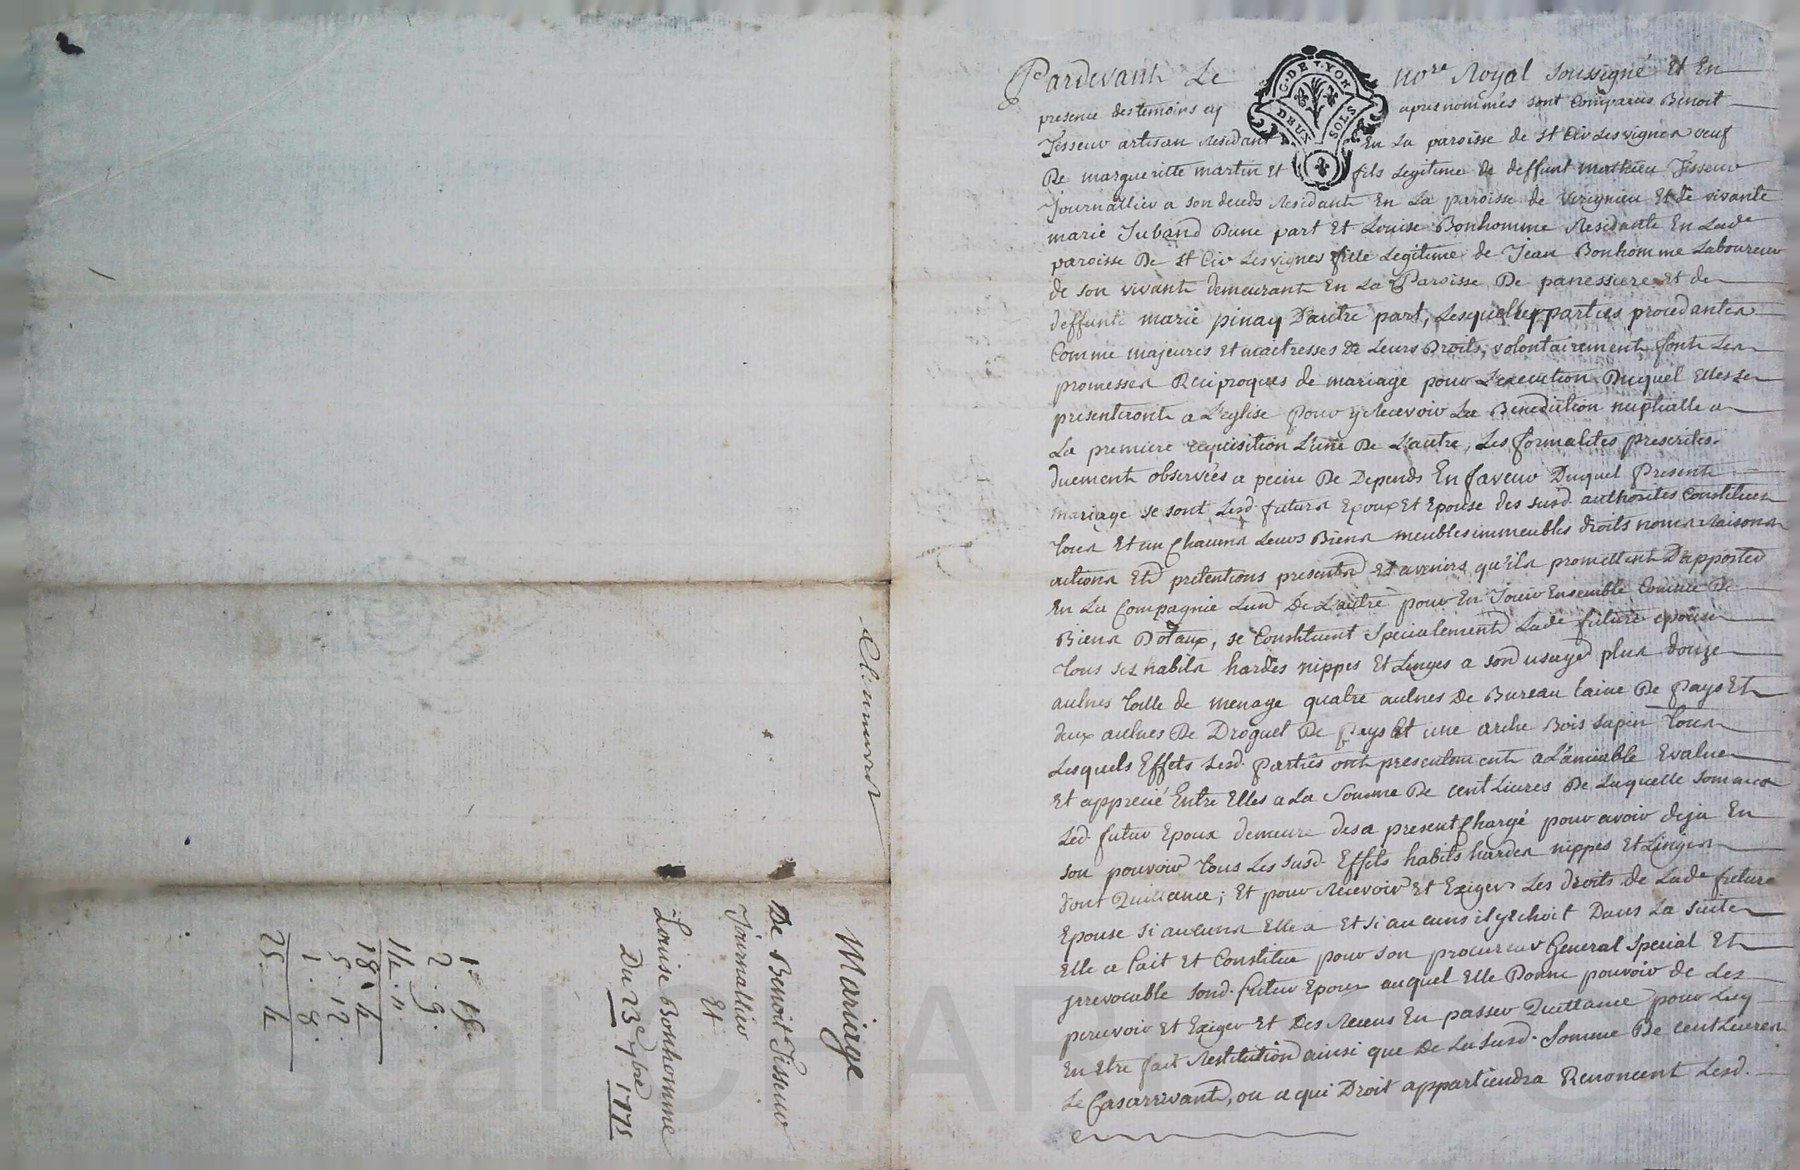 Clumorat
Mariage
De Benoit Tisseur
Journallier
Et
Louise Bonhomme
Du 23e 7bre 1775
1 " 18
2 . 9 .
14 . "
18 . 4
5 . 12
1 . 8
25 4
G. DE LYON
DEUX SOLS
Pardevant Le nore Royal soussigné et En
presence des temoins cy apres nommés sont Comparus Benoit
Tisseur artisan Residant En La paroisse de st Cir Les vignes veuf
De margueritte martin Et fils Legitime de deffunt mathieu Tisseur
Journallier a son deceds Residant En La paroisse de Virignieu Et de vivante
marie Juband Dune part Et Louise Bonhomme Residante En Lade
paroisse De st Cir Les vignes fille Legitime de Jean Bonhomme Laboureur
de son vivant demeurant En La Paroisse De panessiere et de
deffunte marie pinay D'autre part, Lesquelles parties procedantes
Comme majeures et maitresses de Leurs Droits, volontairement font Les
promesses Reciproques de mariage pour L'execution Duquel Elles se
presenteront a L'eglise pour y Recevoir La Benediction nuptialle a
La premiere requisition L'une De L'autre, Les formalites prescrites
duement observées a peine De Depends En faveur Duquel Present
mariage se sont Lesd. futurs Epoux Et Epouse des susd. authorites Constitues
tous Et un Chacuns Leurs Biens meubles immeubles droits noms Raisons
actions Et pretentions presents et avenirs qu'ils promettent D'apporter
En La Compagnie Lun De L'autre pour En Jouir Ensemble Comme De
Biens Dotaux, se Constituent specialement Lade future epouse
tous ses habits hardes nippes Et Linges a son usage plus douze
aulnes toille de menage quatre aulnes De Bureau laine De Pays Et
deux aulnes De Droguet De Pays Et une arche Bois sapin tous
Lesquels Effets Lesd. Parties ont presentement a L'amiable Evalue
Et apprecié Entre Elles a La Somme De cent Livres De Laquelle somme
Led. futur Epoux demeure des a present Chargé pour avoir deja En
son pouvoir tous Les susd. Effets habits hardes nippes Et Linges
dont Quittance; Et pour Recevoir Et Exiger Les droits de Lade future
Epouse si aucuns Elle a Et si aucuns il y echoit Dans La suitte
Elle a fait Et Constitue pour son procureur General special Et
jrrevocable sond. futur Epoux auquel Elle Donne pouvoir de Les
percevoir Et Exiger Et Des Recus En passer Quittance pour Luy
En Etre fait Restitution ainsi que De La susd. Somme De cent Livres
Le Cas arrivant, ou a qui Droit appartiendra Renoncent Lesd.